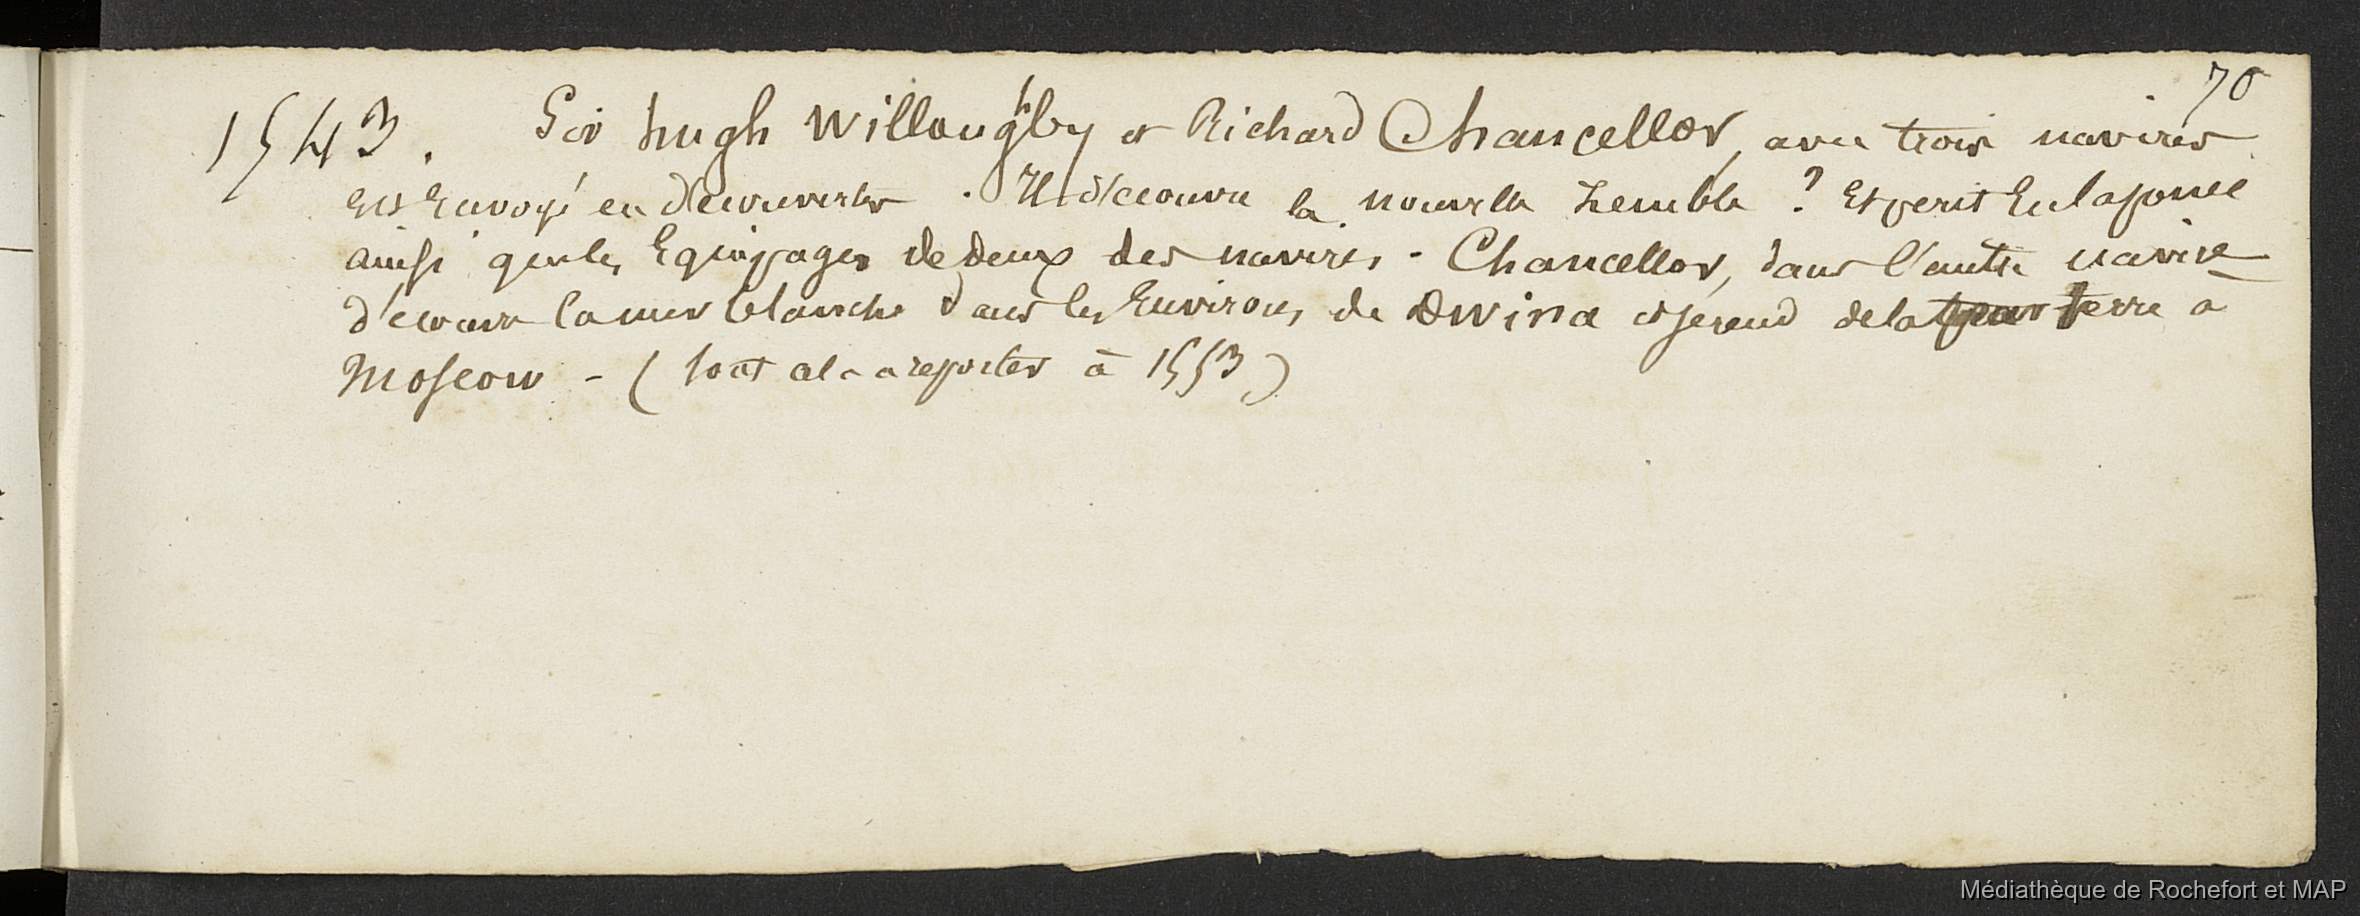 70
1543. Sir hugh Willoughby et Richard Chancellor, avec trois navires
Est Envoyé en découvertes. Il découvre la nouvelle Zemble ? Et perit En laponie
ainsi que les Equipages de deux des navires - Chancellor, dans l'autre navire
découvre la mer blanche dans les Environs de Dwina et se rend de la par terre a
Moscow - (tout cela a reporter à 1553)
Médiathèque de Rochefort et MAP